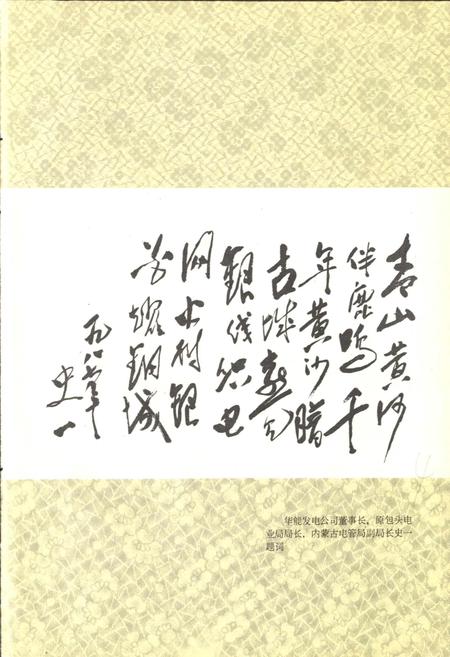 青山黄
伴鹿鸣千
年黄沙暗
古城
银线织电
网火树银
花耀钢城
一九八七年
史一
华能发电公司董事长，原包头电
业局局长，内蒙古电管局副局长史一
题词